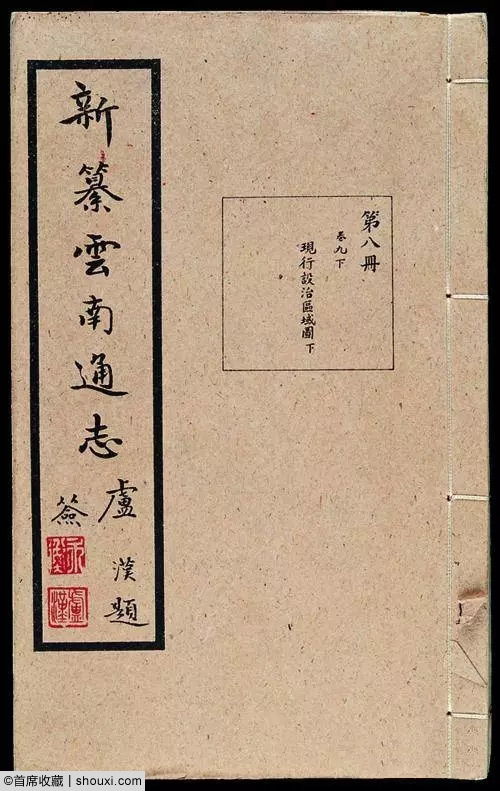 第八冊
卷九下
現行設治區域圖下
新纂雲南通志
盧漢題
簽
盧漢
©首席收藏 | shouxi.com